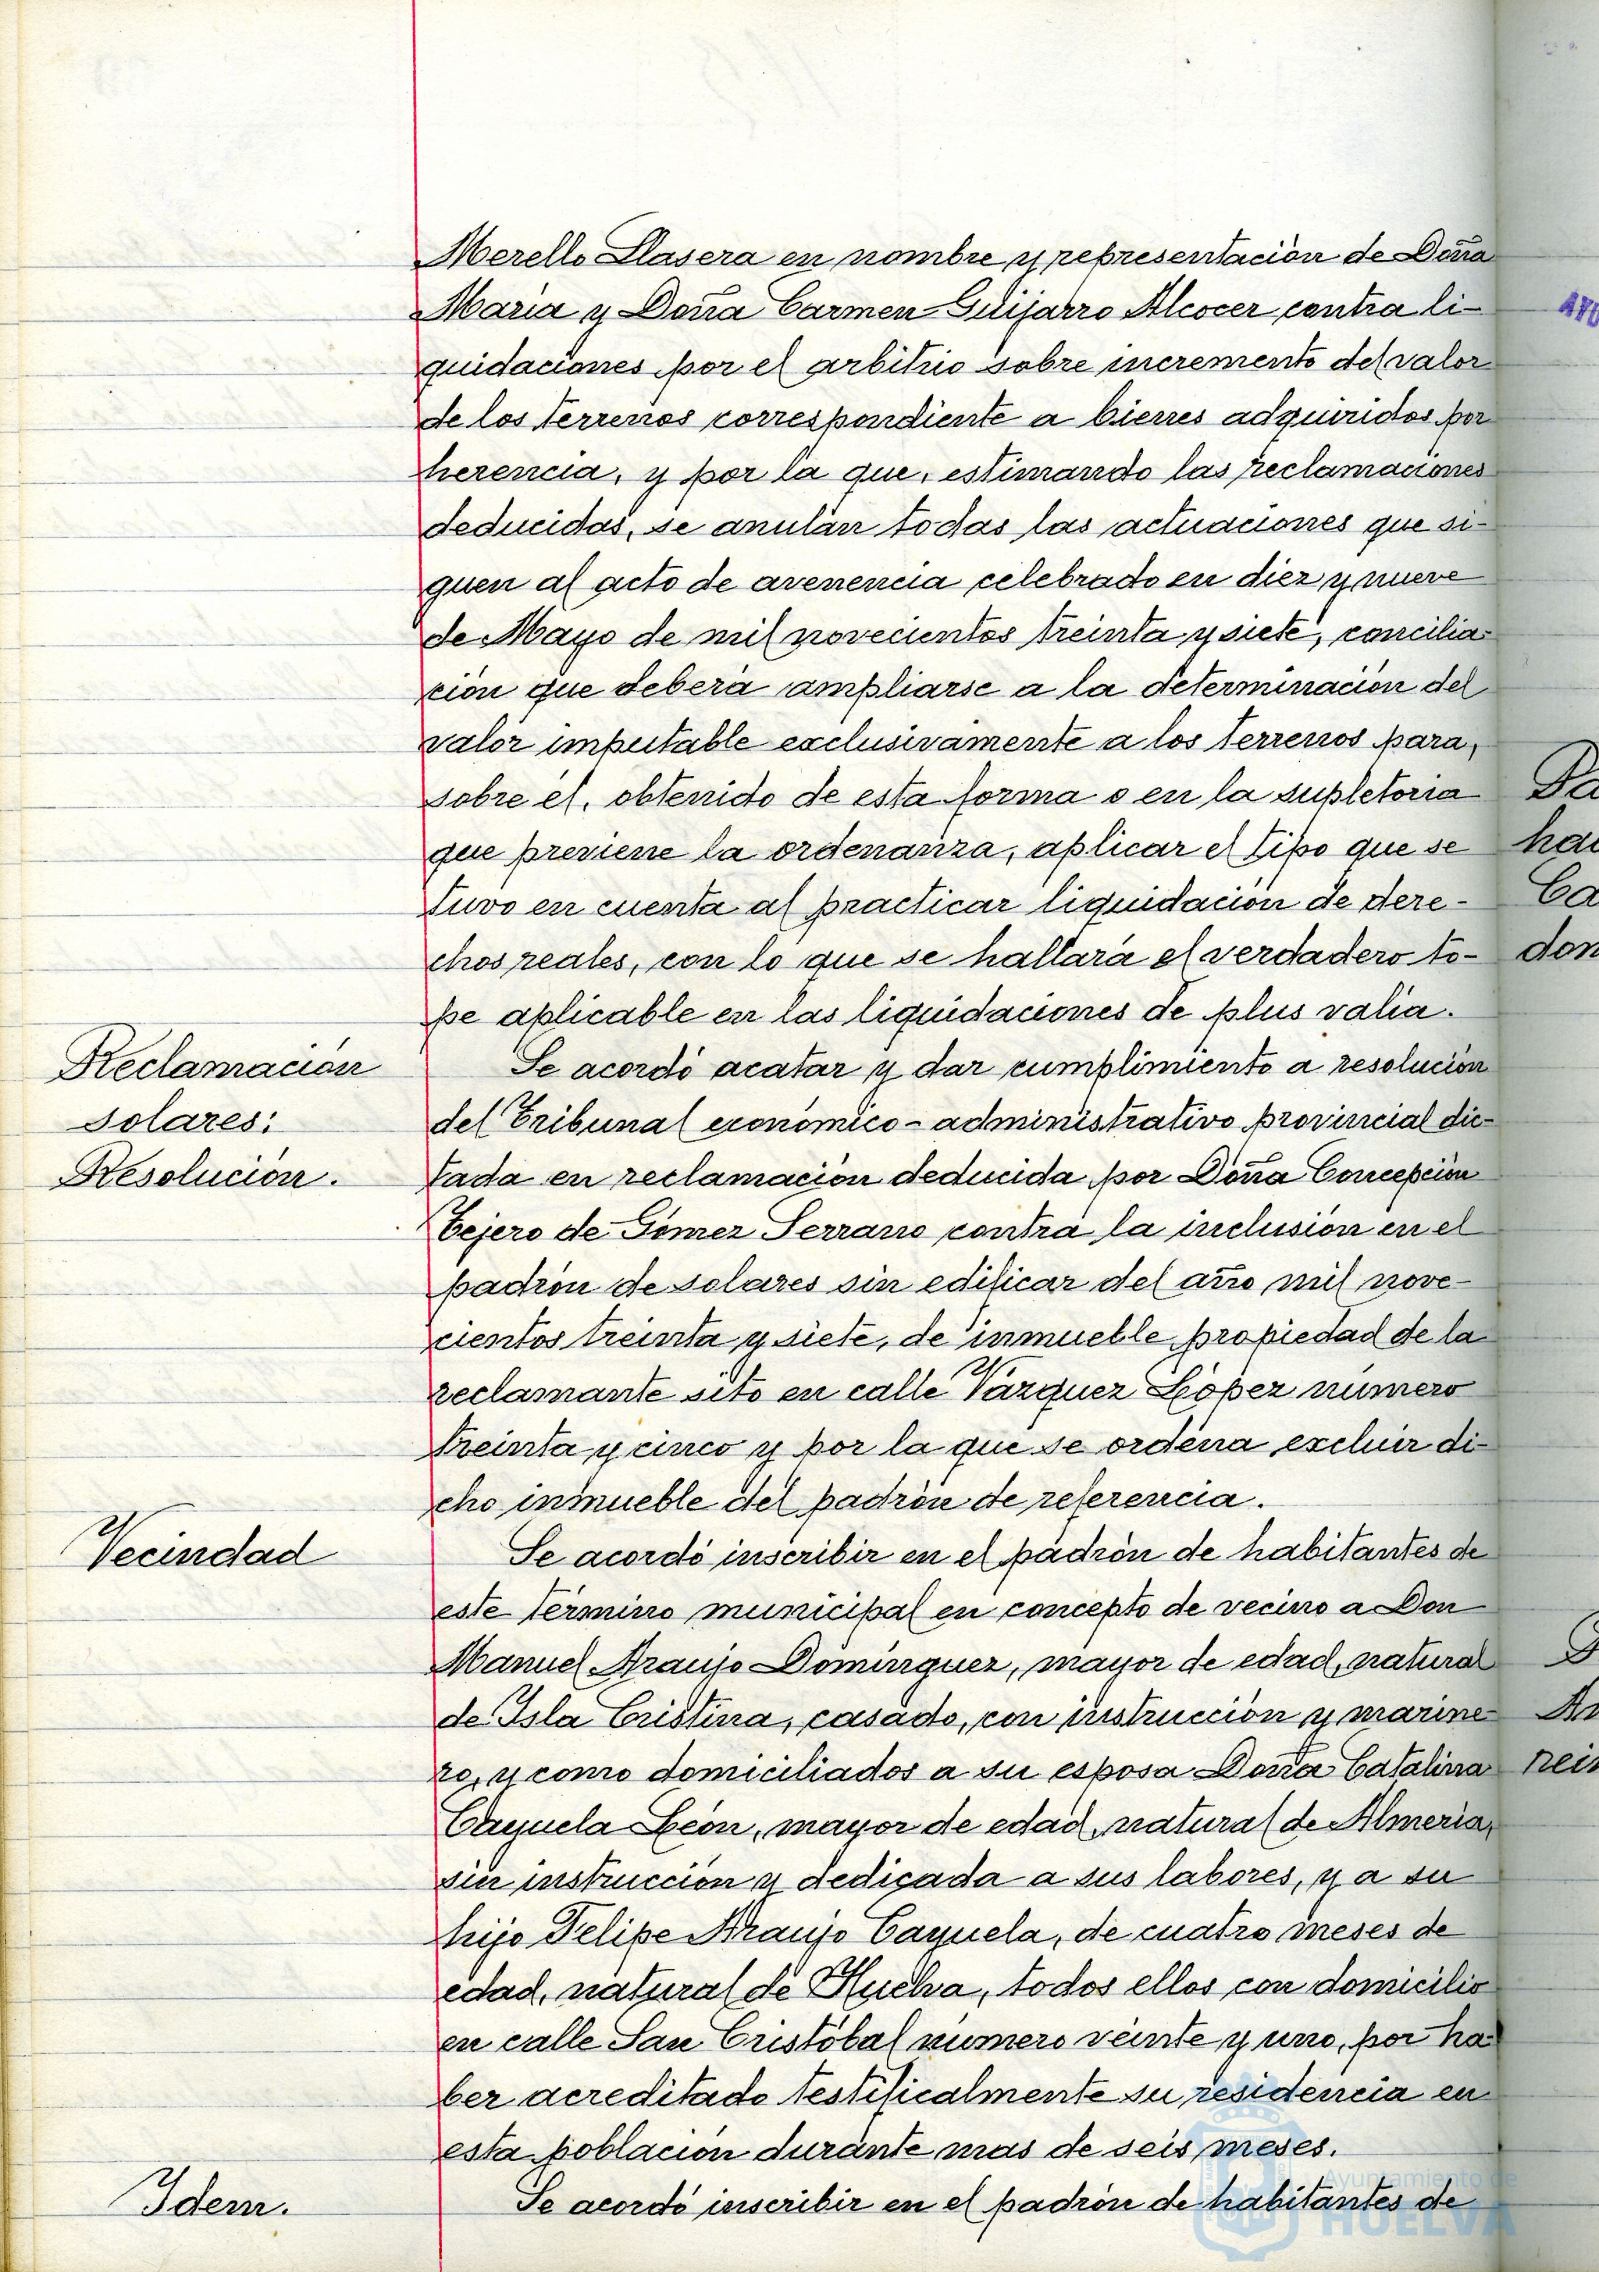 Merello Llasera en nombre y representación de Doña
María y Doña Carmen Guijarro Alcocer contra li-
quidaciones por el arbitrio sobre incremento del valor
de los terrenos correspondiente a bienes adquiridos por
herencia, y por la que, estimando las reclamaciones
deducidas, se anulan todas las actuaciones que si-
guen al acto de avenencia celebrado en diez y nueve
de Mayo de mil novecientos treinta y siete, concilia-
ción que deberá ampliarse a la determinación del
valor imputable exclusivamente a los terrenos para,
sobre él, obtenido de esta forma o en la supletoria
que previene la ordenanza, aplicar el tipo que se
tuvo en cuenta al practicar liquidación de dere-
chos reales, con lo que se hallará el verdadero to-
pe aplicable en las liquidaciones de plus valía.
Reclamación
solares:
Resolución.
Se acordó acatar y dar cumplimiento a resolución
del Tribunal económico-administrativo provincial dic-
tada en reclamación deducida por Doña Concepción
Tejero de Gómez Serrano contra la inclusión en el
padrón de solares sin edificar del año mil nove-
cientos treinta y siete, de inmueble propiedad de la
reclamante sito en calle Vázquez López número
treinta y cinco y por la que se ordena excluir di-
cho inmueble del padrón de referencia.
Vecindad
Se acordó inscribir en el padrón de habitantes de
este término municipal en concepto de vecino a Don
Manuel Araujo Domínguez, mayor de edad, natural
de Isla Cristina, casado, con instrucción y marine-
ro, y como domiciliados a su esposa Doña Catalina
Cayuela León, mayor de edad, natural de Almería,
sin instrucción y dedicada a sus labores, y a su
hijo Felipe Araujo Cayuela, de cuatro meses de
edad, natural de Huelva, todos ellos con domicilio
en calle San Cristóbal número veinte y uno, por ha-
ber acreditado testificalmente su residencia en
esta población durante mas de seis meses.
Idem.
Se acordó inscribir en el padrón de habitantes de
Ayuntamiento de
HUELVA